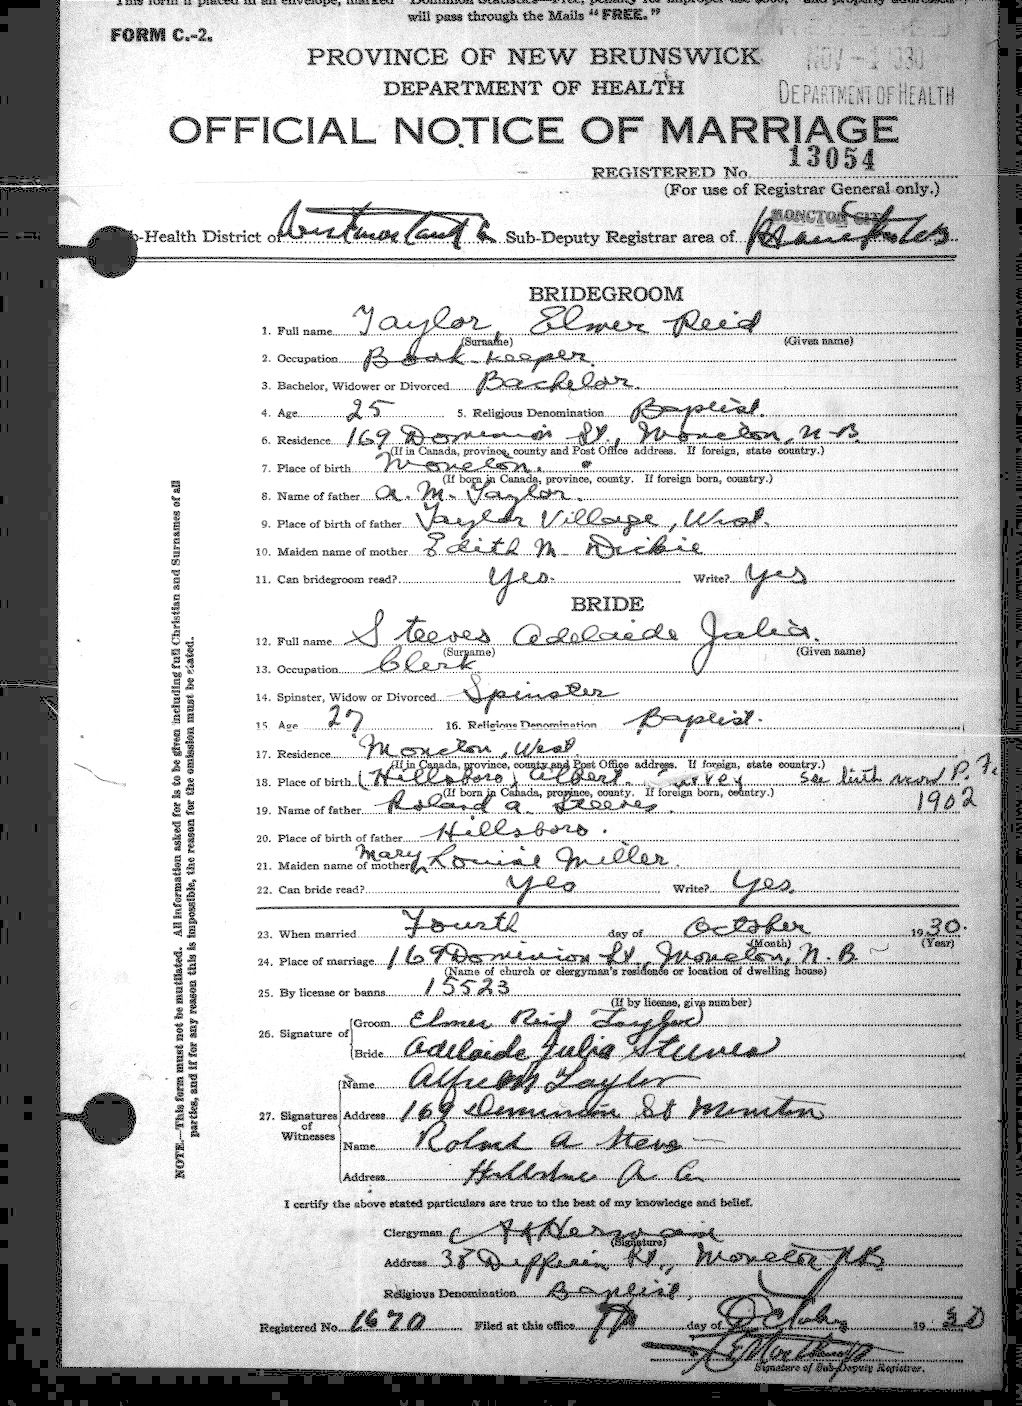 This form if placed in an envelope, marked "Dominion Statistics—Free, penalty for improper use $300," and properly addressed
will pass through the Mails "FREE."
FORM C.-2.
PROVINCE OF NEW BRUNSWICK
NOV -1 1930
DEPARTMENT OF HEALTH
DEPARTMENT OF HEALTH
OFFICIAL NOTICE OF MARRIAGE
REGISTERED No. 13054
(For use of Registrar General only.)
MONCTON CITY
Sub-Health District of Westmorland Co Sub-Deputy Registrar area of
BRIDEGROOM
1. Full name Taylor, Elmer Reid
(Surname) (Given name)
2. Occupation Book-keeper.
3. Bachelor, Widower or Divorced Bachelor.
4. Age 25 5. Religious Denomination Baptist.
6. Residence 169 Dominion St., Moncton, N-B.
(If in Canada, province, county and Post Office address. If foreign, state country.)
7. Place of birth Moncton.
(If born in Canada, province, county. If foreign born, country.)
8. Name of father A. M. Taylor.
9. Place of birth of father Taylor Village, West.
10. Maiden name of mother Edith M. Dickie
11. Can bridegroom read? Yes. Write? Yes
BRIDE
12. Full name Steeves Adelaide Julia.
(Surname) (Given name)
13. Occupation Clerk
14. Spinster, Widow or Divorced Spinster
15 Age 27 16. Religious Denomination Baptist.
17. Residence Moncton, West.
(If in Canada, province, county and Post Office address. If foreign, state country.)
18. Place of birth (Hillsboro) Albert. see birth record P. F.
(If born in Canada, province, county. If foreign born, country.)
1902
19. Name of father Roland A. Steeves
20. Place of birth of father Hillsboro.
21. Maiden name of mother Mary Louise Miller.
22. Can bride read? Yes Write? Yes.
23. When married Fourth day of October 1930.
(Month) (Year)
24. Place of marriage 169 Dominion St., Moncton, N. B.
(Name of church or clergyman's residence or location of dwelling house)
25. By license or banns 15523
(If by license, give number)
26. Signature of
Groom Elmer Reid Taylor
Bride Adelaide Julia Steeves
27. Signatures of Witnesses
Name Alfred M Taylor
Address 169 Dominion St Moncton
Name Roland A Steeves
Address Hillsboro A. Co
I certify the above stated particulars are true to the best of my knowledge and belief.
Clergyman
(Signature)
Address 38 Dufferin St., Moncton N.B.
Religious Denomination Baptist.
Registered No. 1670 Filed at this office 7th day of October 1930
Signature of Sub-Deputy Registrar.
NOTE.—This form must not be mutilated. All information asked for is to be given including full Christian and Surnames of all
parties, and if for any reason this is impossible, the reason for the omission must be stated.